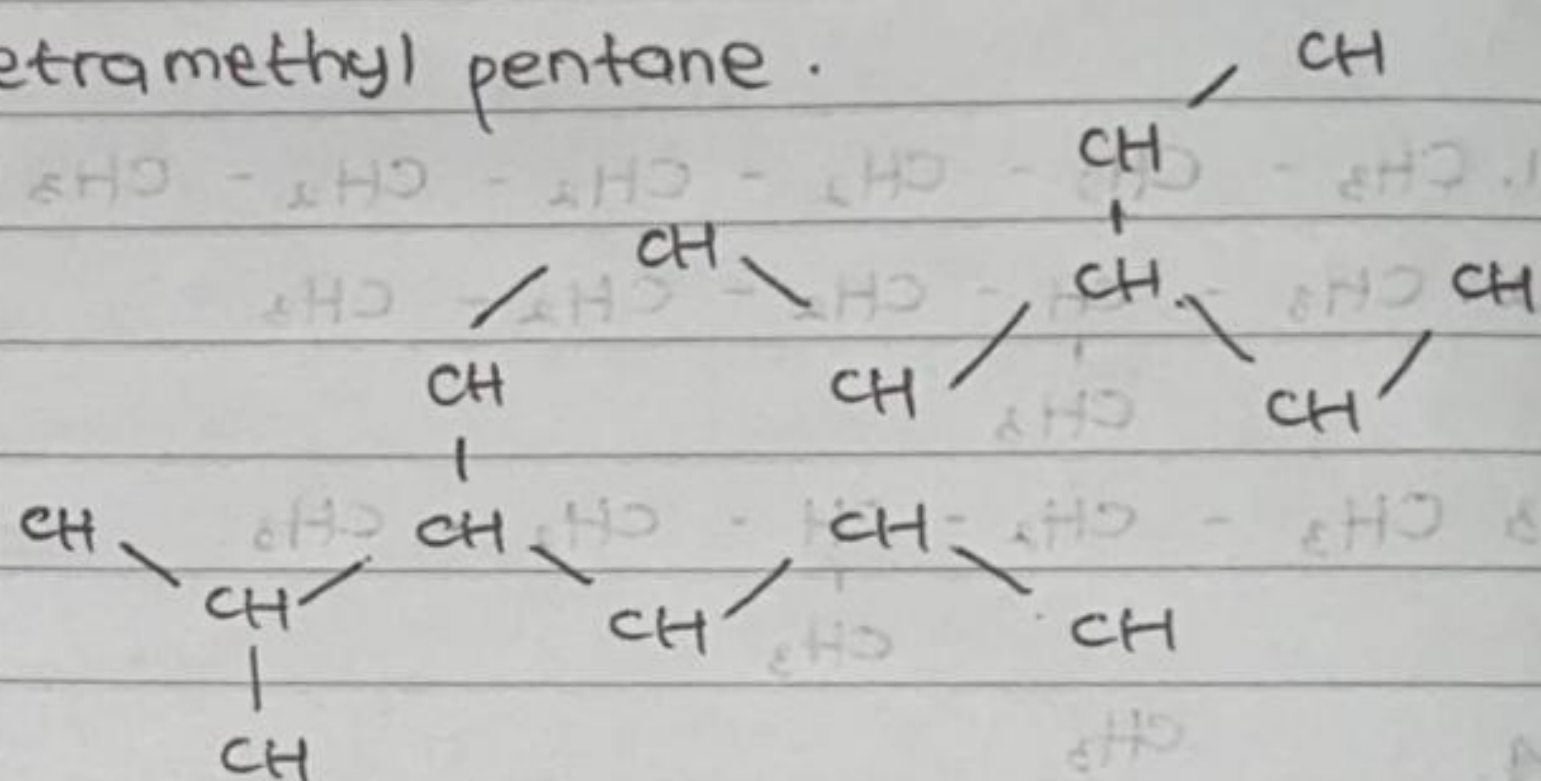 etramethyl pentane.
CH
CH
CH CH CH
CH CH CH
CH CH CH
CH CH CH
CH